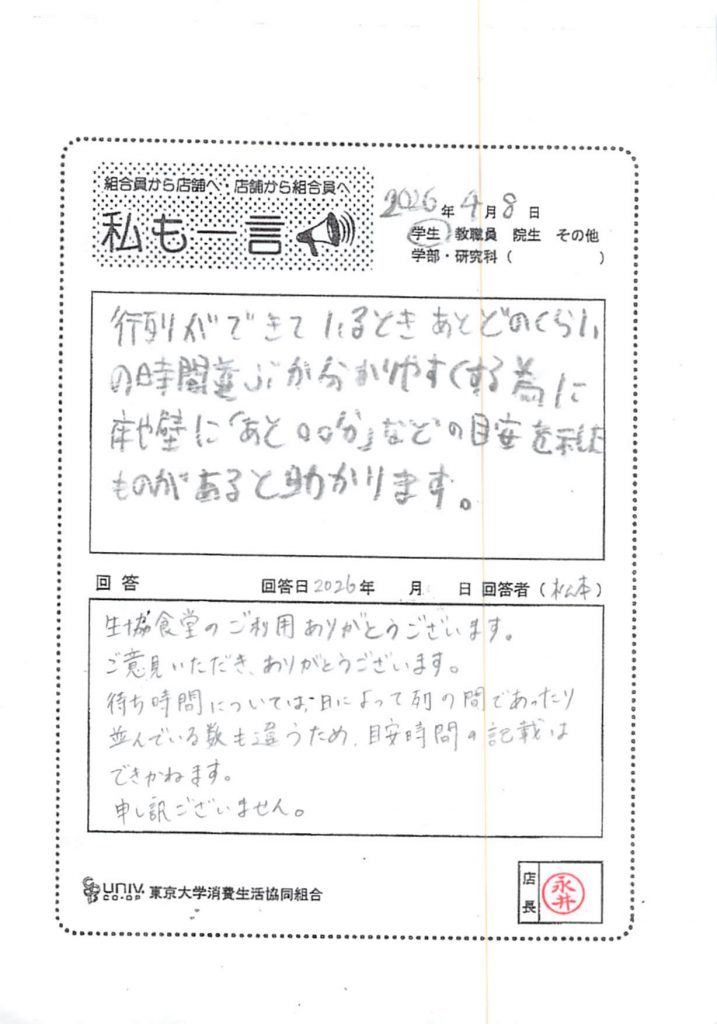 組合員から店舗へ・店舗から組合員へ
私も一言
2026年4月8日
学生 教職員 院生 その他
学部・研究科（ ）
行列ができているときあとどのくらい
の時間並ぶか分かりやすくする為に
床や壁に「あと〇〇分」などの目安を示した
ものがあると助かります。
回答 回答日2026年 月 日 回答者（松本）
生協食堂のご利用ありがとうございます。
ご意見いただき、ありがとうございます。
待ち時間については、日によって列の間であったり
並んでいる数も違うため、目安時間の記載は
できかねます。
申し訳ございません。
UNIV. CO-OP 東京大学消費生活協同組合
店長 永井